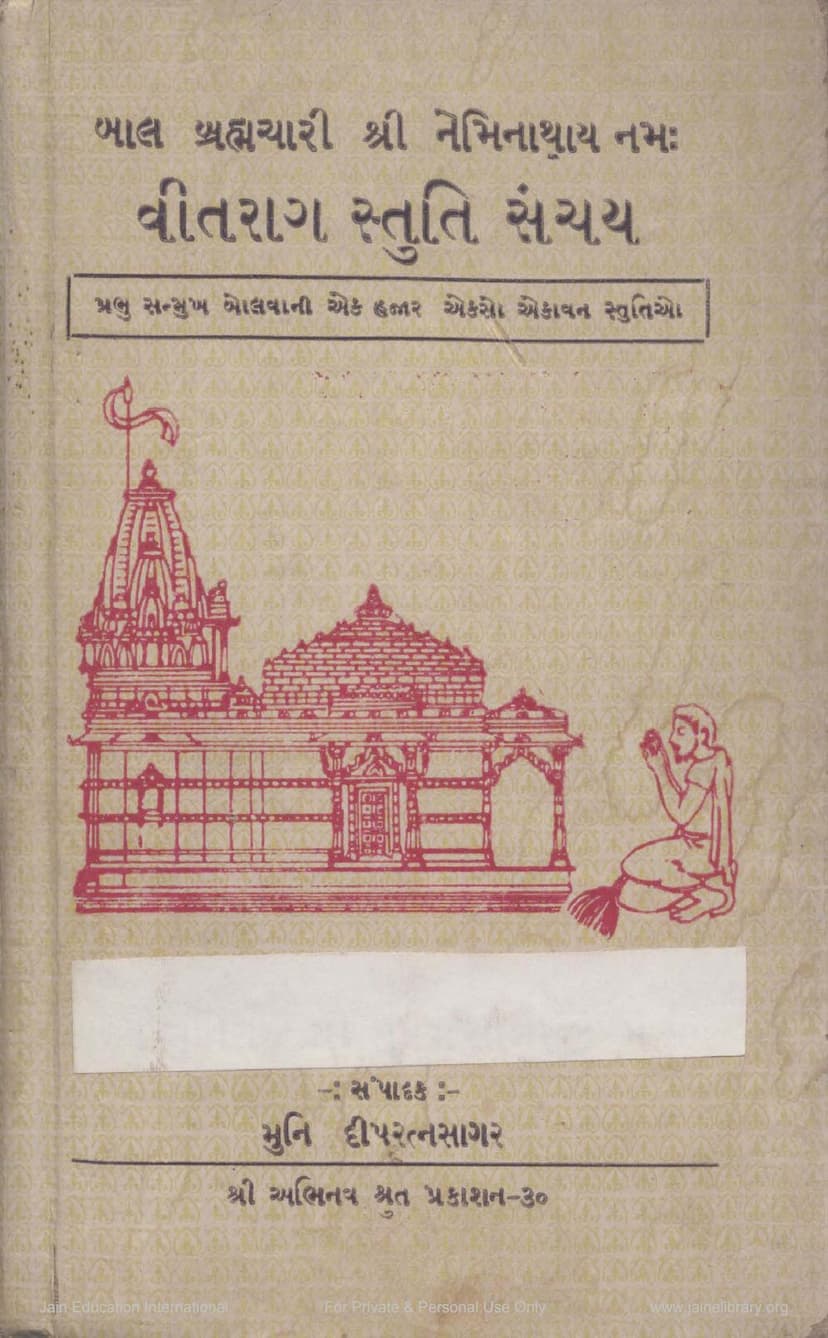 બાલ બ્રહ્મચારી શ્રી નેમિનાથાય નમઃ
વીતરાગ સ્તુતિ સંચય
પ્રભુ સન્મુખ બોલવાની એક હજાર એકસો એકાવન સ્તુતિઓ
-: સંપાદક :-
મુનિ દીપરત્નસાગર
શ્રી અભિનવ શ્રુત પ્રકાશન-૩૦
Jain Education International For Private & Personal Use Only www.jainelibrary.org